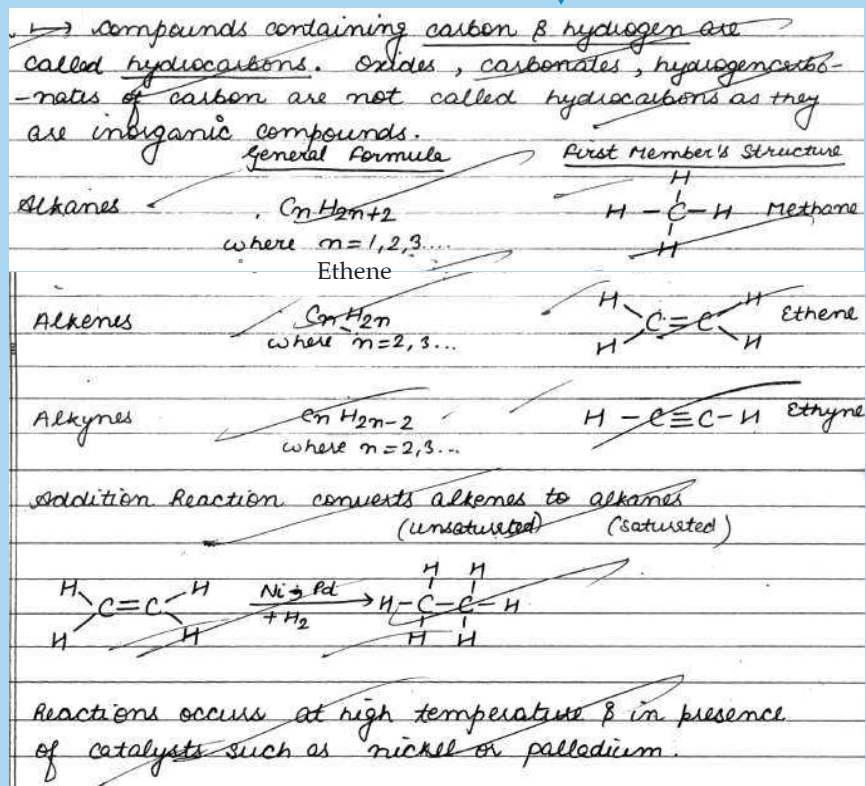 ↳ Compounds containing carbon & hydrogen are
called hydrocarbons. Oxides, carbonates, hydrogencarbo-
-nates of carbon are not called hydrocarbons as they
are inorganic compounds.
General Formula First Member's Structure
H
Alkanes CnH2n+2 H-C-H Methane
where n=1,2,3.... H
Ethene
H H
Alkenes CnH2n C=C Ethene
where n=2,3... H H
Alkynes CnH2n-2 H-C≡C-H Ethyne
where n=2,3...
Addition Reaction converts alkenes to alkanes
(unsaturated) (saturated)
H H H H
C=C Ni, Pd → H-C-C-H
H H +H2 H H
Reactions occurs at high temperature & in presence
of catalysts such as nickel or palladium.